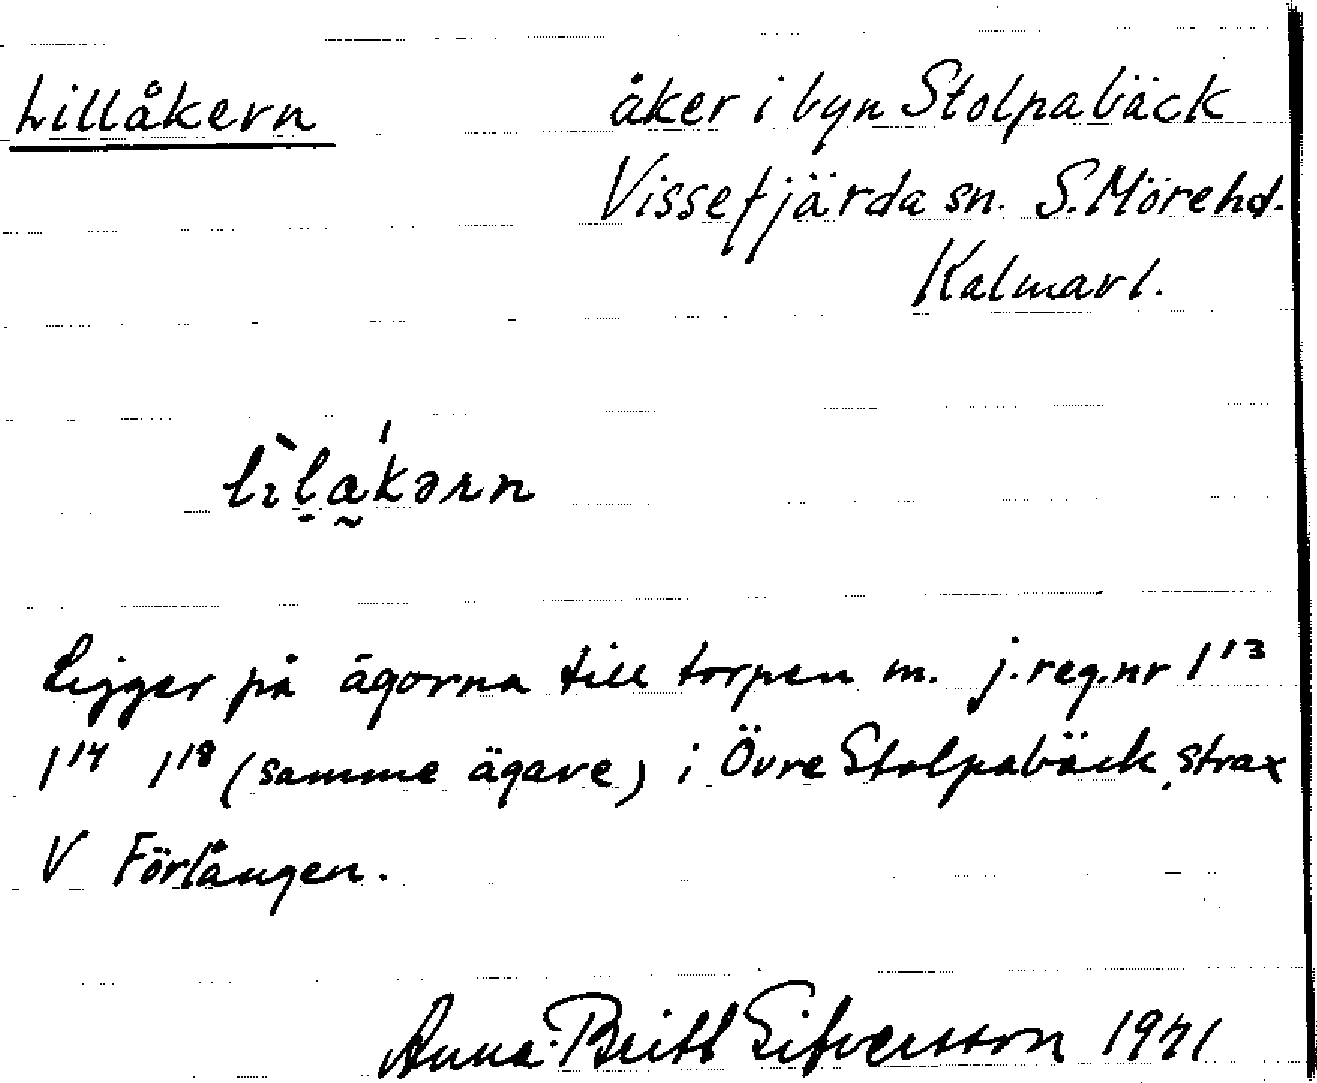 Lillåkern åker i byn Stolpabäck
Vissefjärda sn. S. Möre hd.
Kalmar l.
Ligger på ägorna till torpen m. j.reg.nr 1¹³
1¹⁴ 1¹⁸ (samme ägare) i Övre Stolpabäck, strax
V Förlången.
Anna-Britt Sifversson 1971